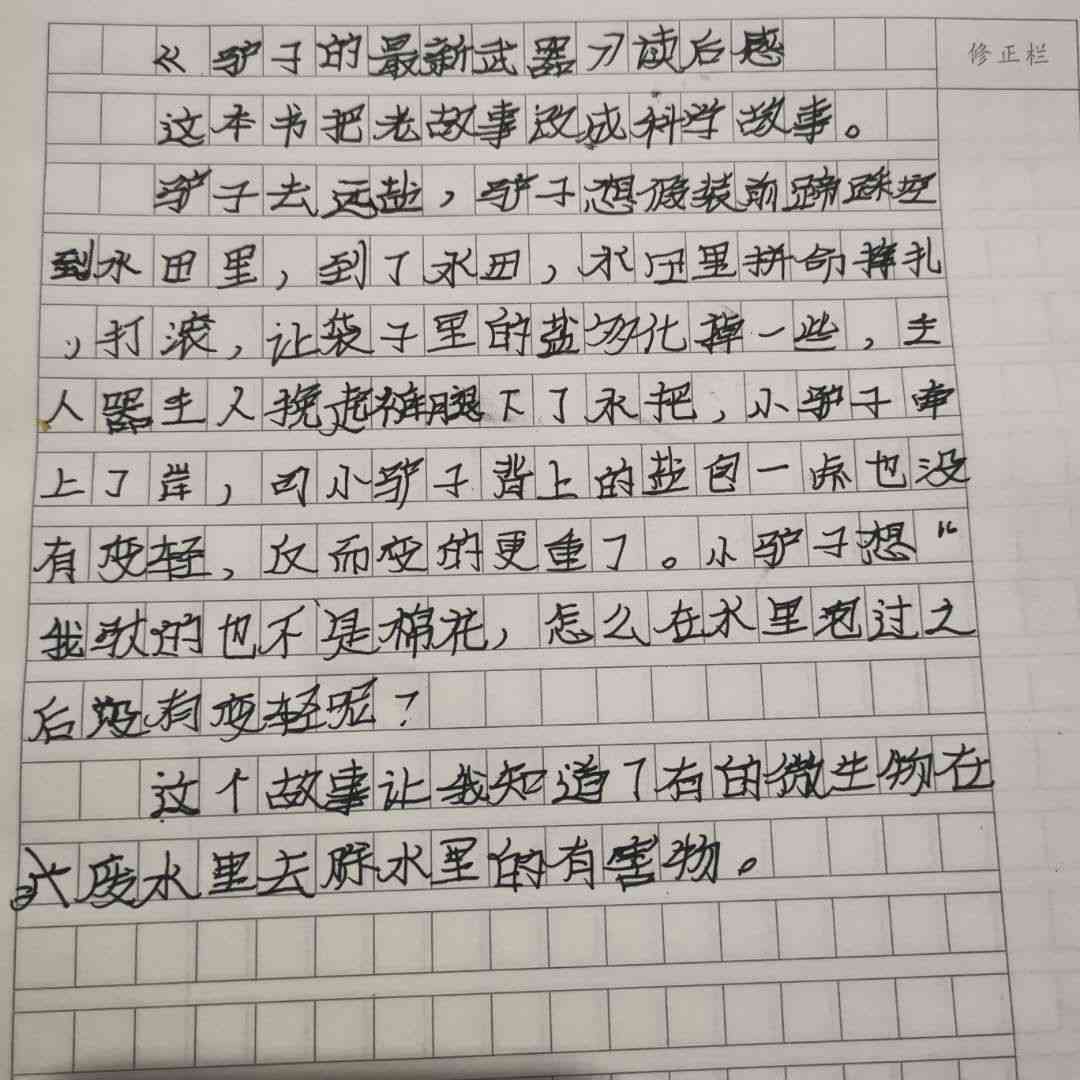 《驴子的最新武器》读后感
修正栏
这本书把老故事改成科学故事。
驴子去运盐，驴子想假装前蹄踩空
到水田里，到了水田，水田里拼命挣扎
，打滚，让袋子里的盐多化掉一些，主
人器主人挽起裤腿下了水把，小驴子牵
上了岸，可小驴子背上的盐包一点也没
有变轻，反而变的更重了。小驴子想“
我驮的也不是棉花，怎么在水里泡过之
后没有变轻呢？
这个故事让我知道了有的微生物在
废水里去除水里的有害物。